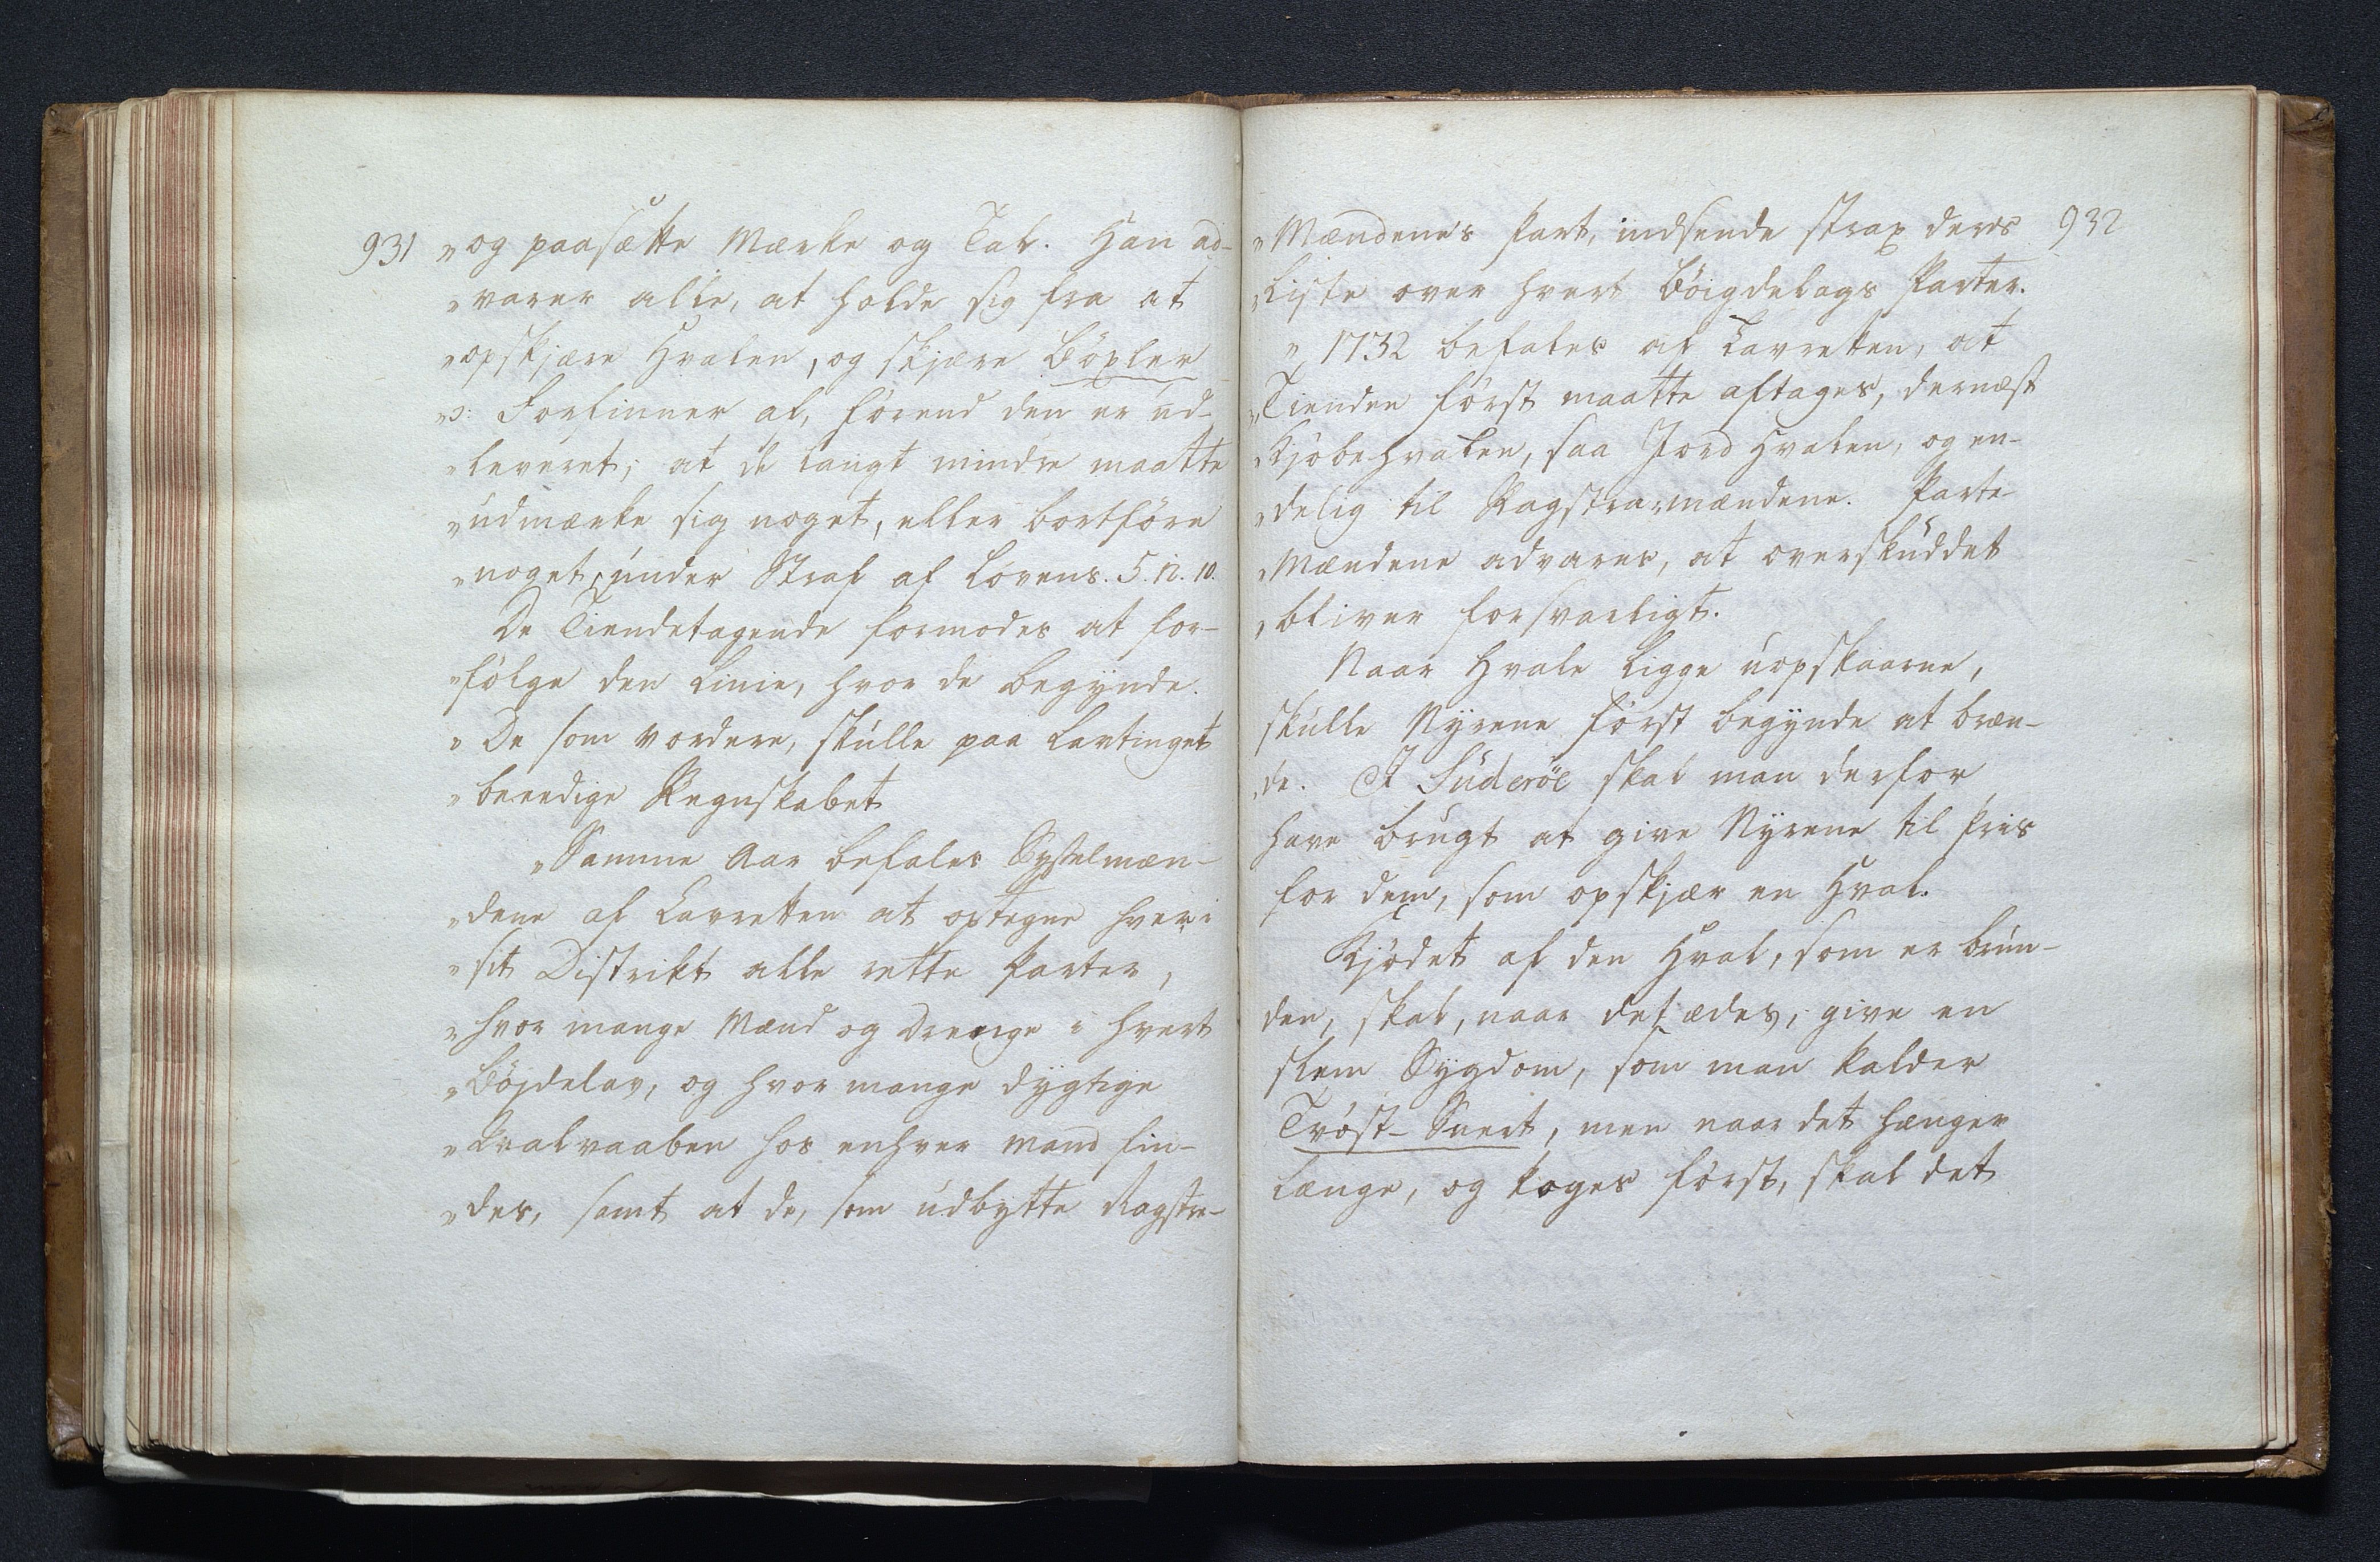 931 "og paasætte Mærke og Tal. Han ad-
"varer alle, at holde sig fra at
"opskjære Hvalen, og skjære Böxler
"ɔ: Forfinner af, förend den er ud-
"leveret; at de langt mindre maatte
"udmærke sig noget, eller bortföre
"noget, under Straf af Lovens. 5. N. 10.
De Tiendetagende formodes at for-
"fölge den Linie, hvor de begynde.
"De som vordere, skulle paa Lavtinget
"beedige Regnskabet
"Samme Aar befales Sysselmæn-
"dene af Lavretten at optegne hver i
"sit Distrikt alle rette Parter,
"hvor mange Mænd og Drenge i hvert
"Böjdelav, og hvor mange dygtige
"Hvalvaaben hos enhver Mand fin-
"des, samt at de, som udbytte Ragstre-
"Mændenes Part, indsende strax deres 932
"Liste over hvert Böigdelags Parter.
" 1732 befales af Lavretten, at
"Tienden först maatte aftages, dernæst
"Kjöbehvalen, saa Jord Hvalen, og en-
"delig til Ragstramændene. Parte-
"Mændene advares, at overskuddet
"bliver forsvarligt.
Naar Hvale ligge uopskaarne,
skulle Nyrene först begynde at bræn-
de. I Suderöe skal man derfor
have brugt at give Nyrene til Pris
for dem, som opskjær en Hval.
Kjödet af den Hval, som er brun-
den, skal, naar det ædes, give en
slem Sygdom, som man kalder
Tröst-Suert, men naar det hænger
længe, og koges först, skal det